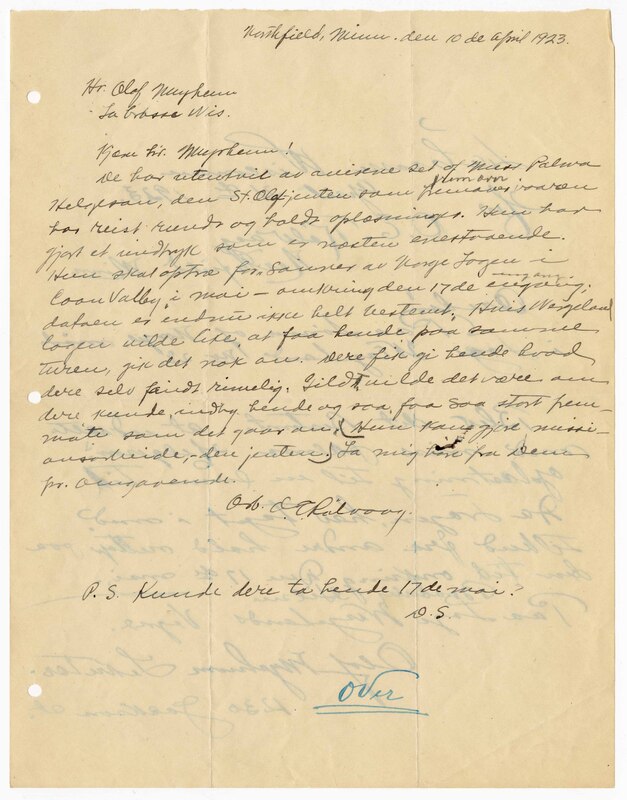 Northfield, Minn. den 10 de April 1923.
Hr. Olof Myhrum
La Crosse Wis.
Kjære hr. Myhrum!
De har utentvil av aviserne set of Miss Palma
Helgeson, den St. Olaf jenten som vaaren
har reist rundt og holdt oplæsninger. Hun har
gjort et indtryk som er næsten enestaaende.
Hun skal optræ for Sønner av Norge Logen i
Coon Valley i mai — omkring den 17 de engang.
datoen er endnu ikke helt bestemt. Hvis Wergeland
logen vilde like, at faa hende paa samme
turen, gik det nok an. Dere fik gi hende hvad
dere selv fandt rimelig. Gildt vilde det være om
dere kunde indby hende og saa faa saa stort frem-
møte som det gaar an. (Hun kan gjøre missi-
onsarbeide, den jenten.) La mig høre fra Dem
pr. omgaaende.
Arb. O E Rølvaag.
P. S. Kunde dere ta hende 17 de mai?
D. S.
Over